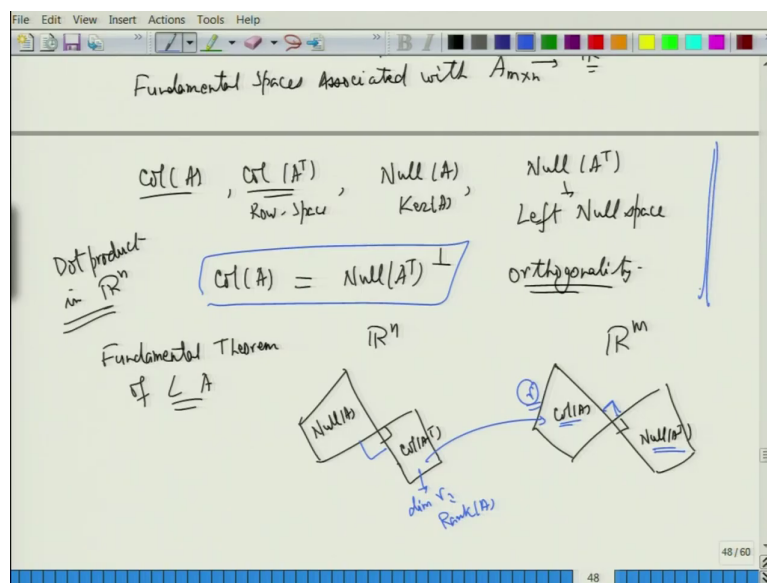 File Edit View Insert Actions Tools Help
Fundamental Spaces Associated with A_{m×n} → ℝ
Col(A), Col(Aᵀ), Null(A), Null(Aᵀ)
Row-Space Ker(A) ↓ Left Null space
Dot product in ℝⁿ
Col(A) = Null(Aᵀ)^⊥ orthogonality.
Fundamental Theorem of L A
ℝⁿ ℝᵐ
Null(A) Col(Aᵀ)
r Col(A) Null(Aᵀ)
dim r =
Rank(A)
48/60
48